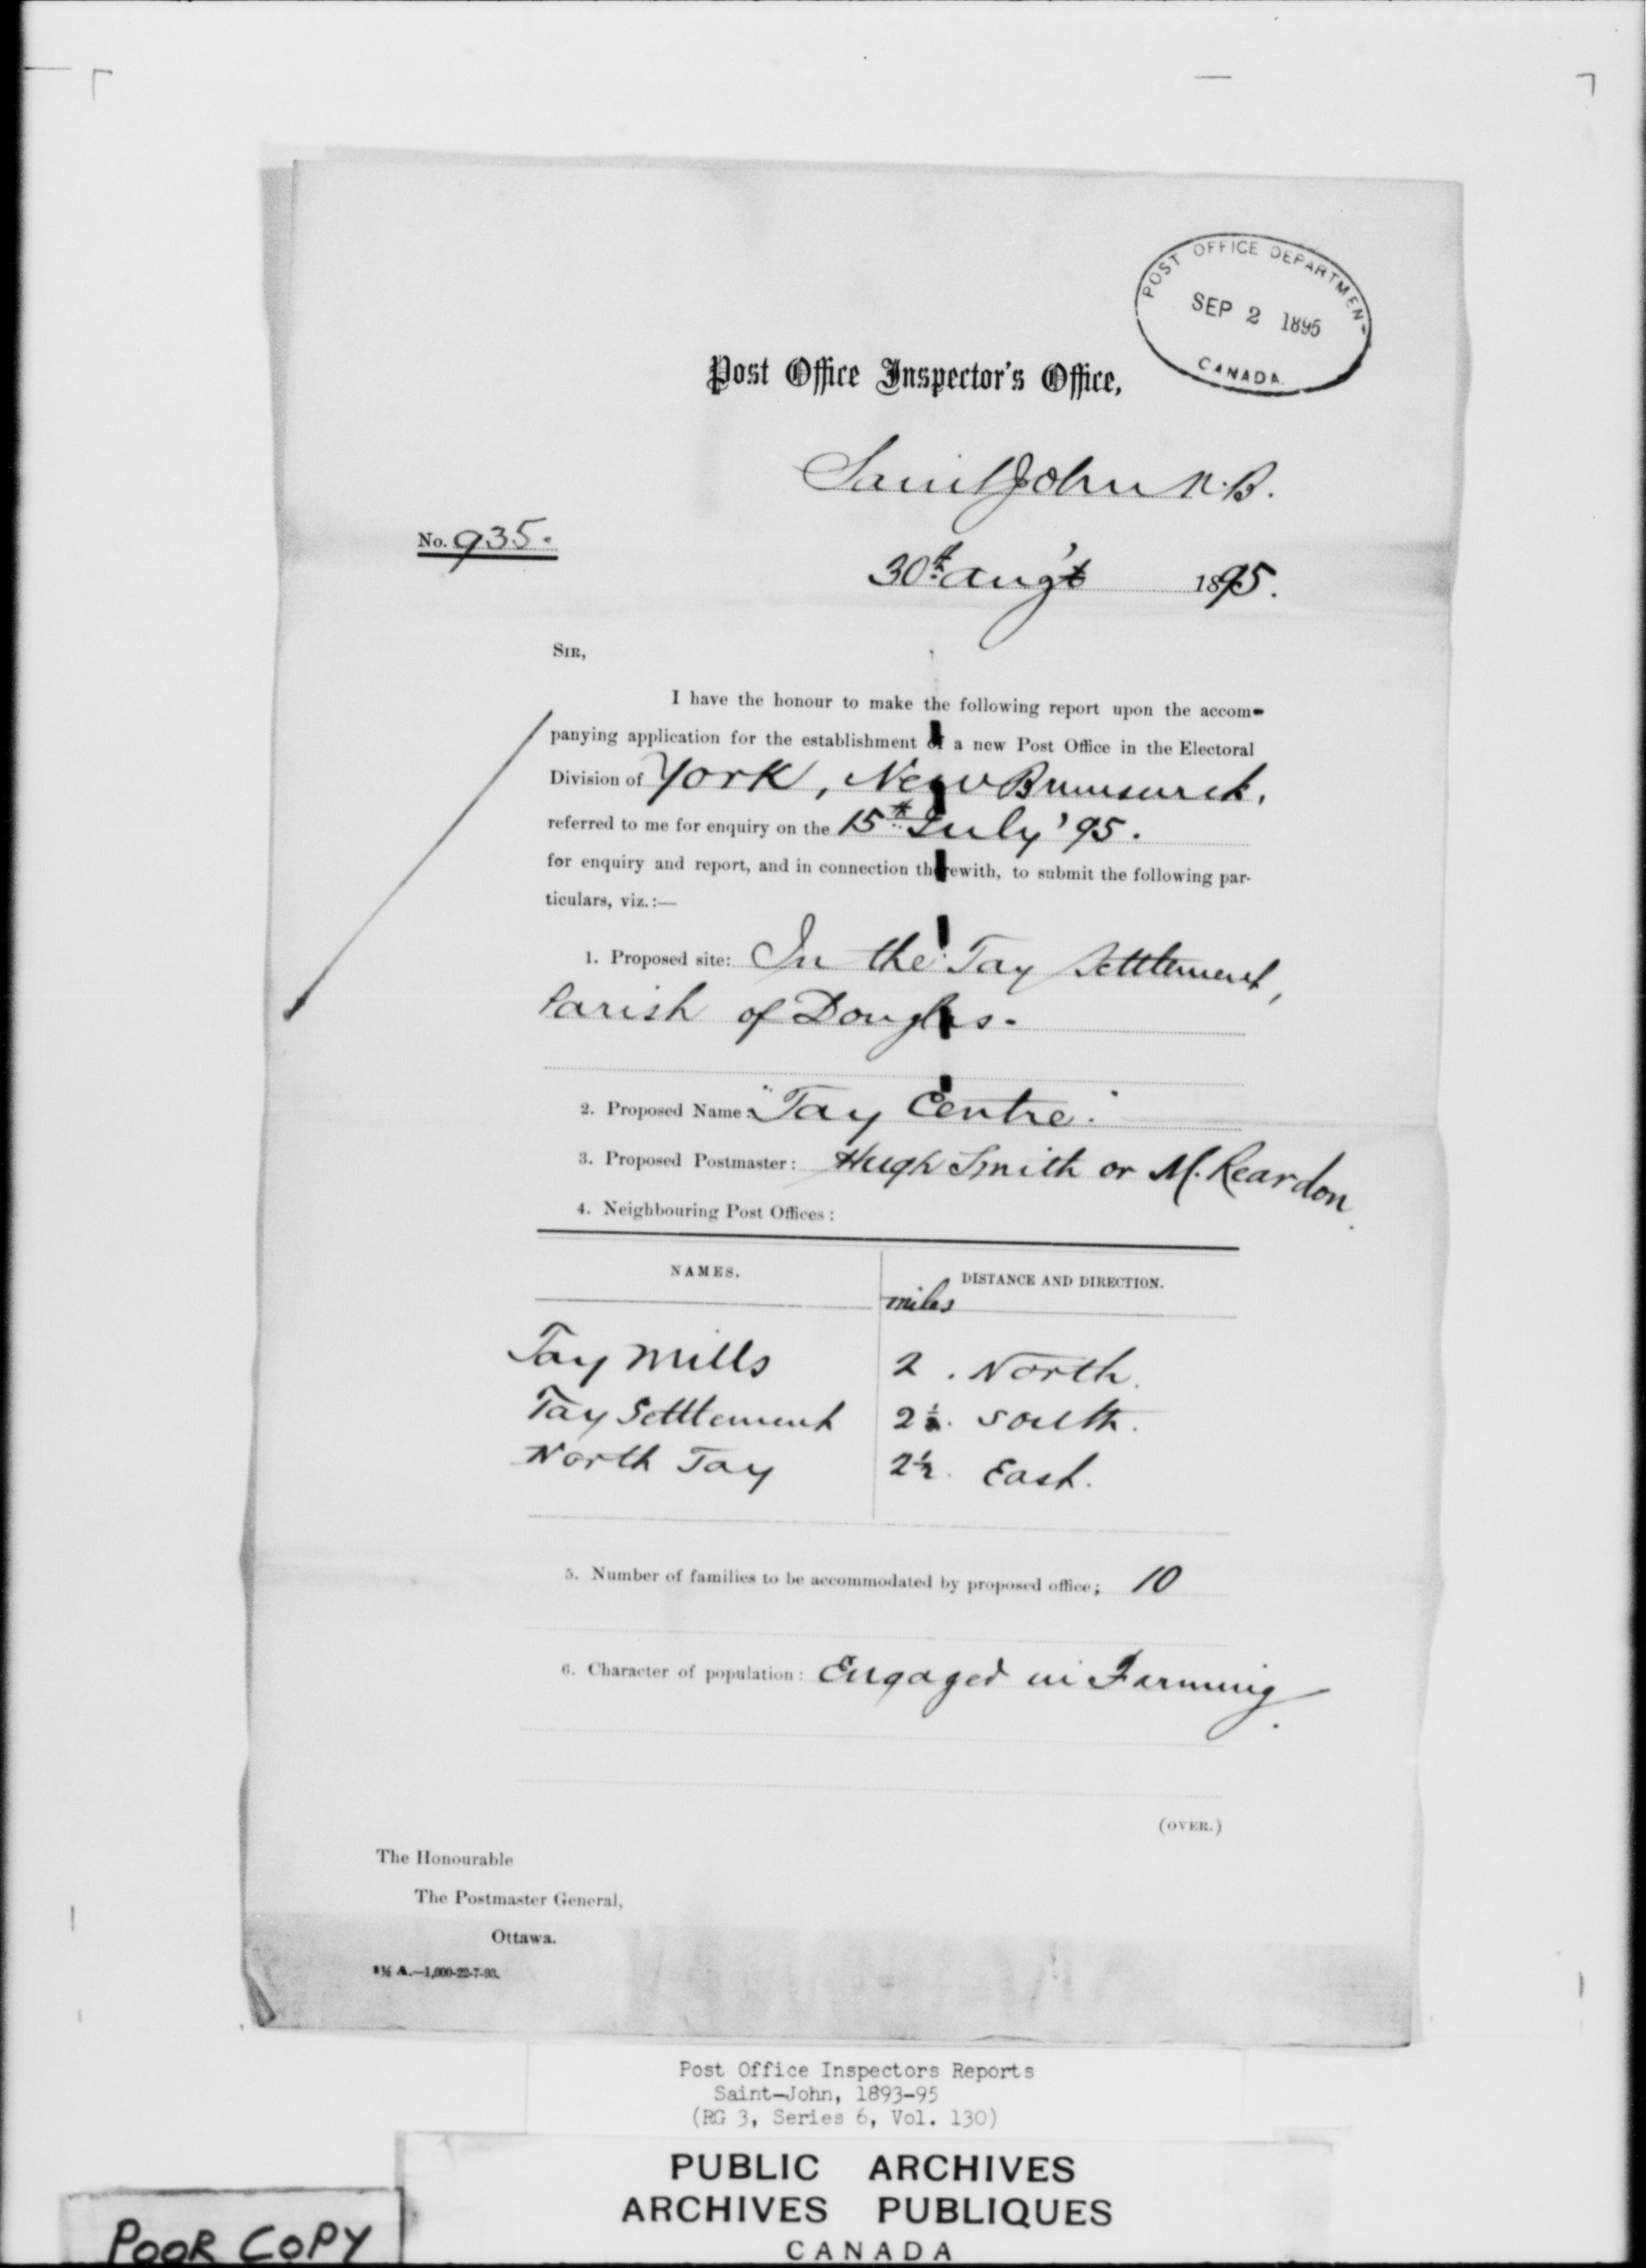 POST OFFICE DEPARTMEN
SEP 2 1895
CANADA
Post Office Inspector's Office,
Saint John N.B.
No. 935.
30th Aug't 1895.
SIR,
I have the honour to make the following report upon the accom-
panying application for the establishment of a new Post Office in the Electoral
Division of York, New Brunswick,
referred to me for enquiry on the 15th July '95.
for enquiry and report, and in connection therewith, to submit the following par-
ticulars, viz.:—
1. Proposed site: In the Tay Settlement,
Parish of Douglas.
2. Proposed Name: "Tay Centre."
3. Proposed Postmaster: Hugh Smith or M. Reardon.
4. Neighbouring Post Offices:
NAMES. DISTANCE AND DIRECTION.
miles
Tay Mills 2. North.
Tay Settlement 2½. South.
North Tay 2½. East.
5. Number of families to be accommodated by proposed office; 10
6. Character of population: Engaged in Farming.
(OVER.)
The Honourable
The Postmaster General,
Ottawa.
A.—1,000-22-7-93.
Post Office Inspectors Reports
Saint-John, 1893-95
(RG 3, Series 6, Vol. 130)
PUBLIC ARCHIVES
ARCHIVES PUBLIQUES
CANADA
POOR COPY